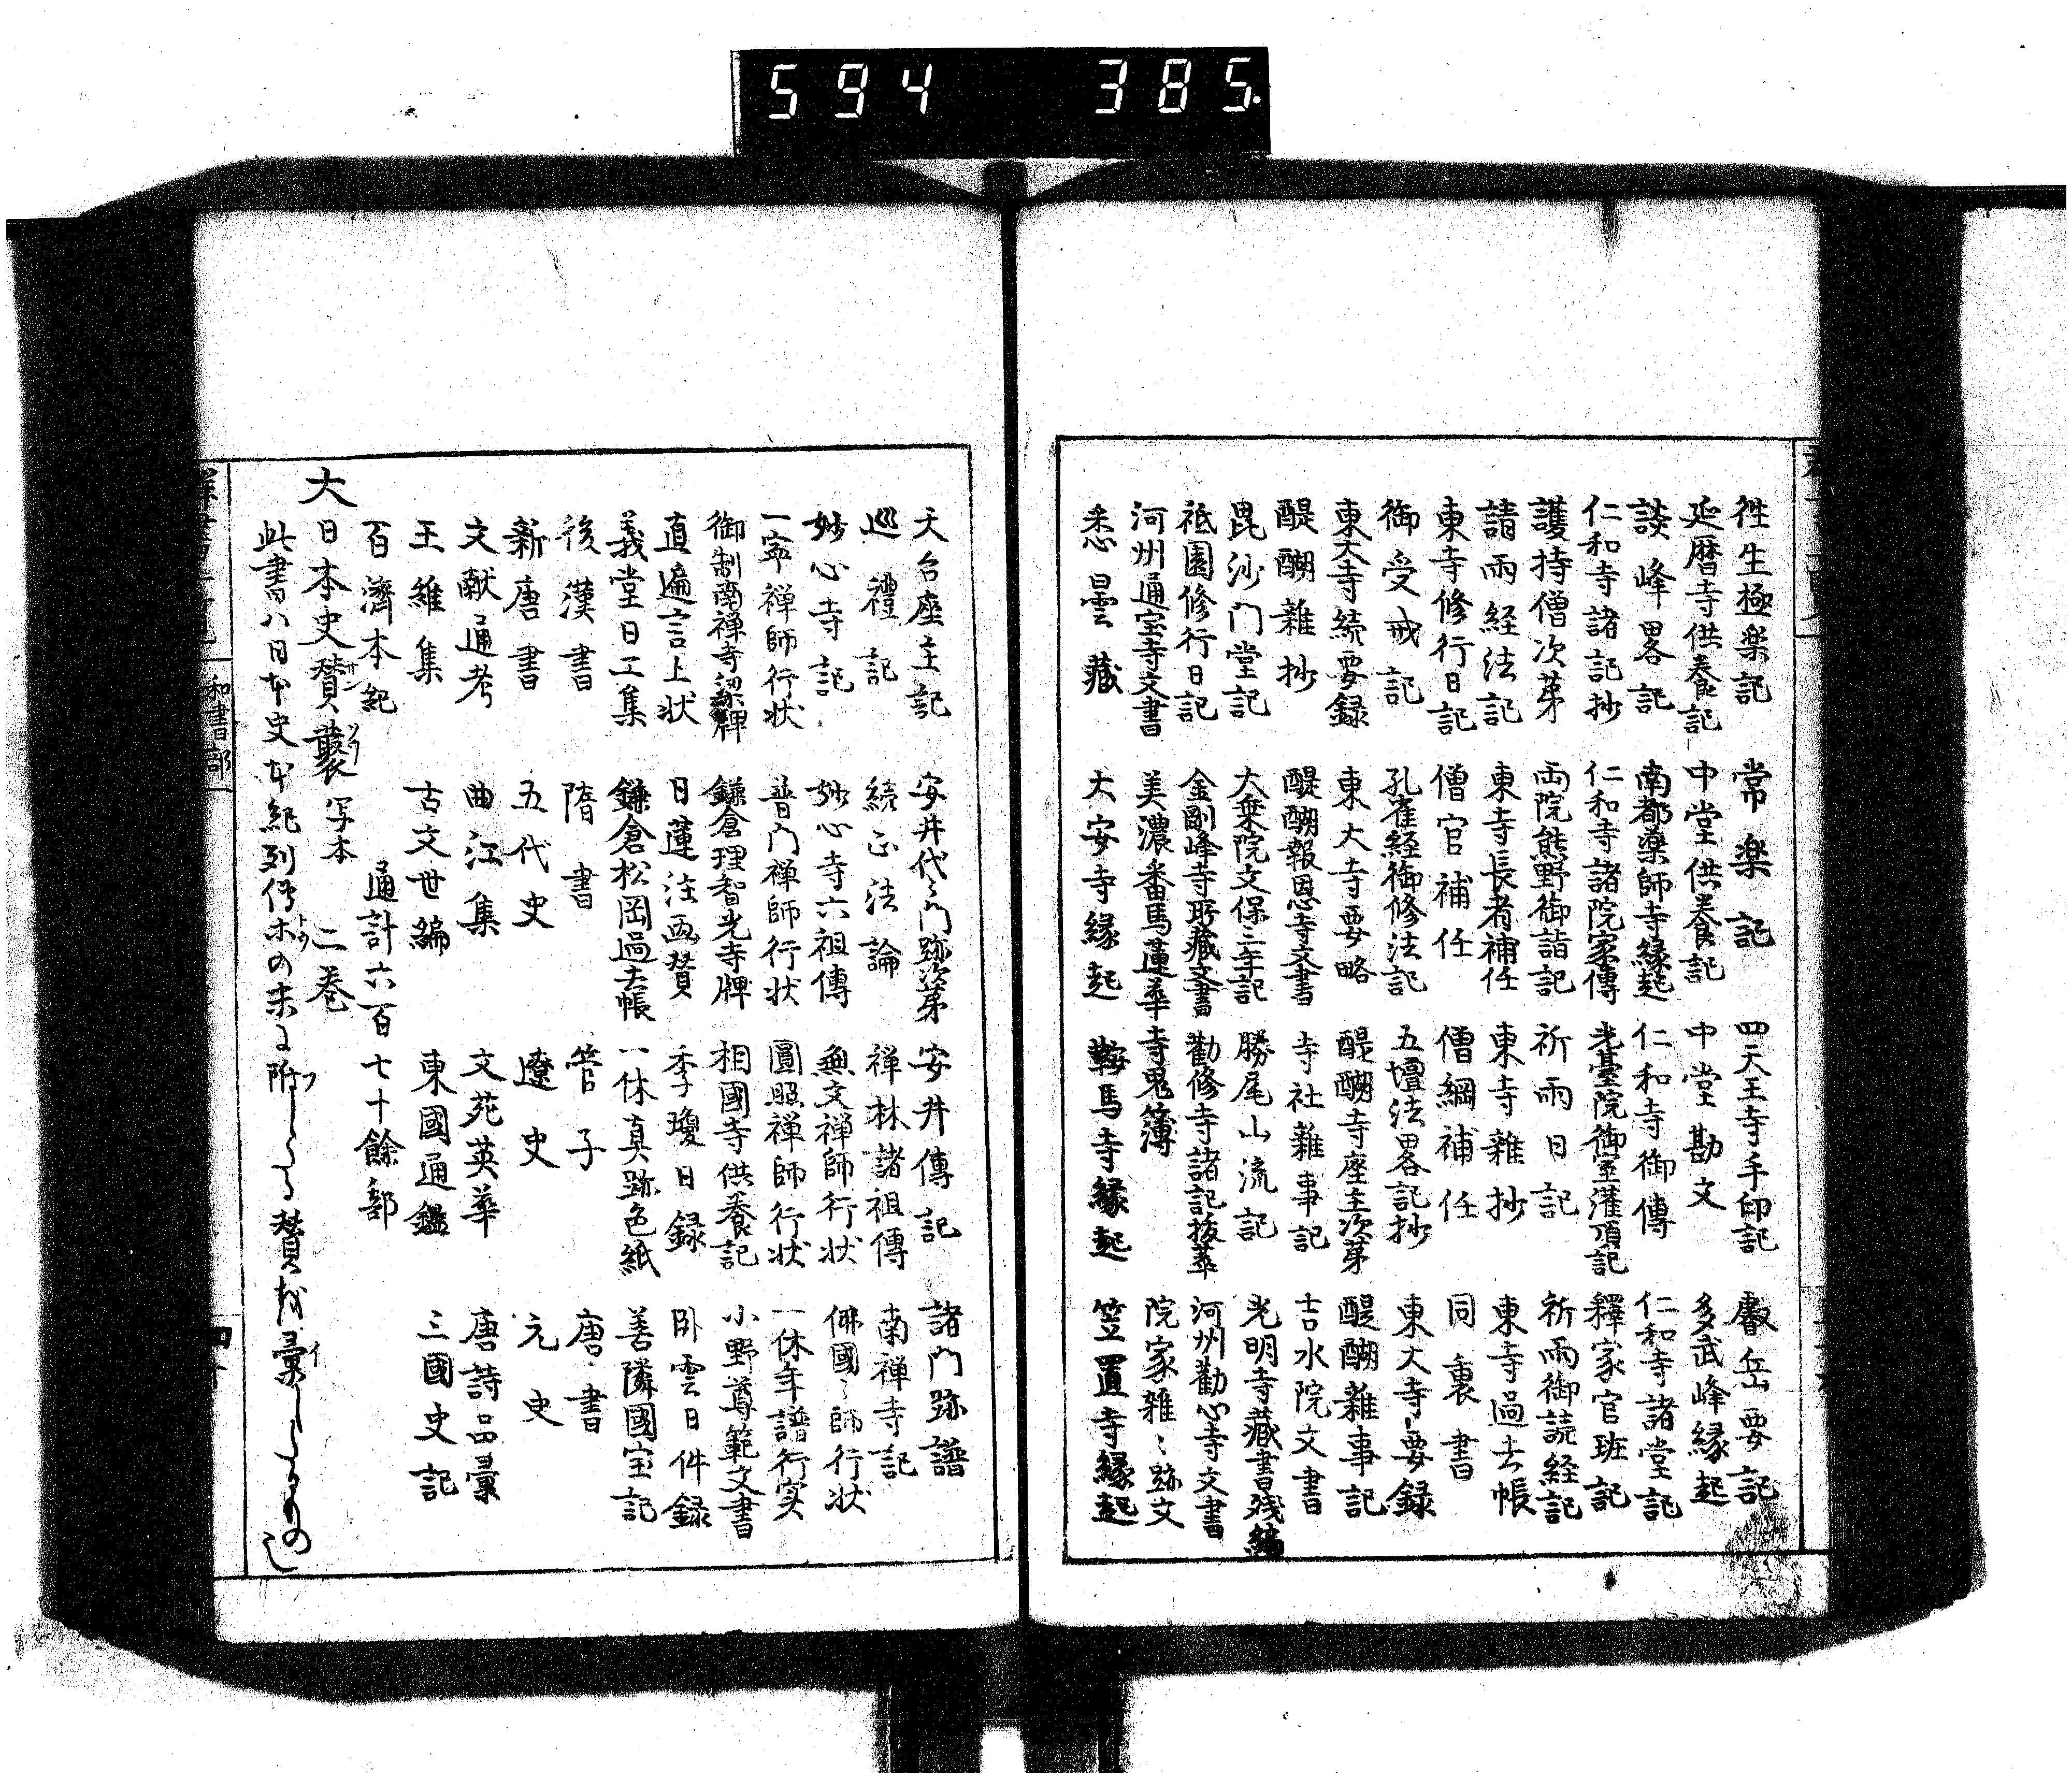 594 385.
徃生極楽記 常楽記 四天王寺手印記 叡岳要記
延暦寺供養記 中堂供養記 中堂勘文 多武峰縁起
談峰畧記 南都藥師寺縁起 仁和寺御傳 仁和寺諸堂記
仁和寺諸記抄 仁和寺諸院家傳 光臺院御室灌頂記 釋家官班記
護持僧次苐 両院熊野御詣記 祈雨日記 祈雨御読経記
請雨経法記 東寺長者補任 東寺雜抄 東寺過去帳
東寺修行日記 僧官補任 僧綱補任 同裏書
御受戒記 孔雀経御修法記 五壇法畧記抄 東大寺要録
東大寺続要録 東大寺要略 醍醐寺座主次苐 醍醐雜事記
醍醐雜抄 醍醐報恩寺文書 寺社雜事記 吉水院文書
毘沙門堂記 大乗院文保三年記 勝尾山流記 光明寺藏書残編
祗園修行日記 金剛峰寺所藏文書 勸修寺諸記抜萃 河州勸心寺文書
河州通宝寺文書 美濃番馬蓮華寺鬼簿 院家雜〻跡文
悉曇藏 大安寺縁起 鞍馬寺縁起 笠置寺縁起
天台座主記 安井代〻門跡次苐 安井傳記 諸門跡譜
巡禮記 続正法論 禅林諸祖傳 南禅寺記
妙心寺記 妙心寺六祖傳 無文禅師行状 佛國〻師行状
一寧禅師行状 普門禅師行状 圓照禅師行状 一休年譜行実
御制南禅寺梁牌 鎌倉理智光寺牌 相國寺供養記 小野尊範文書
直遍言上状 日蓮注画賛 季瓊日録 卧雲日件録
義堂日工集 鎌倉松岡過去帳 一休真跡色紙 善隣國宝記
後漢書 隋書 管子 唐書
新唐書 五代史 遼史 元史
文献通考 曲江集 文苑英華 唐詩品彙
王維集 古文世編 東國通鑑 三國史記
百濟本紀 通計六百七十餘部
大日本史賛藂 写本 二巻
此書ハ日本史本紀列傳
和書部